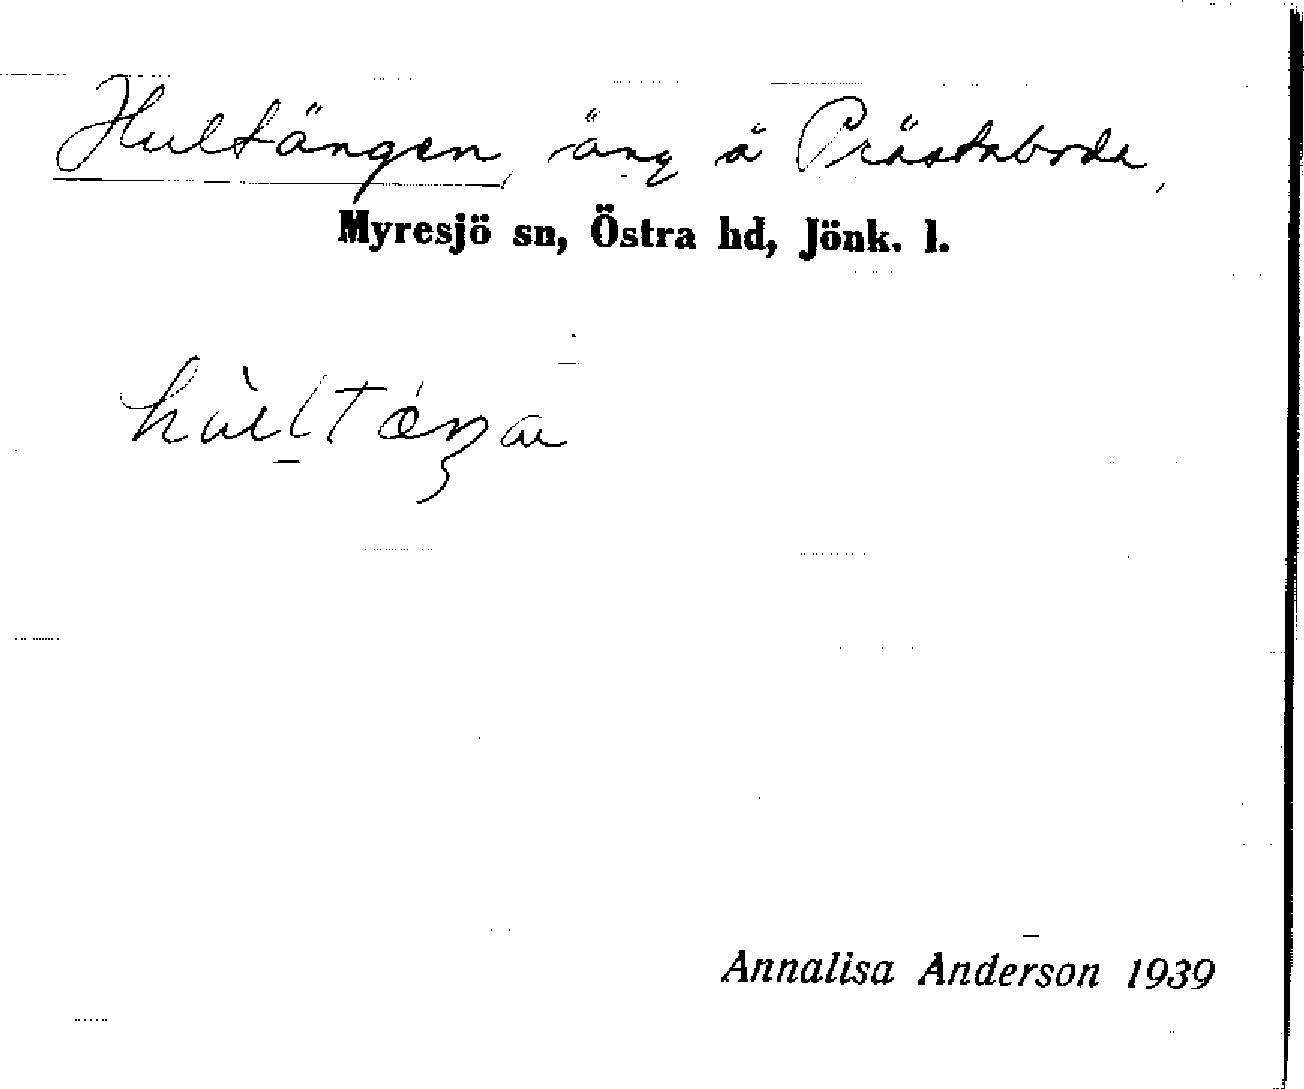 Hultängen, äng å Prästaboda,
Myresjö sn, Östra hd, Jönk. l.
Annalisa Anderson 1939